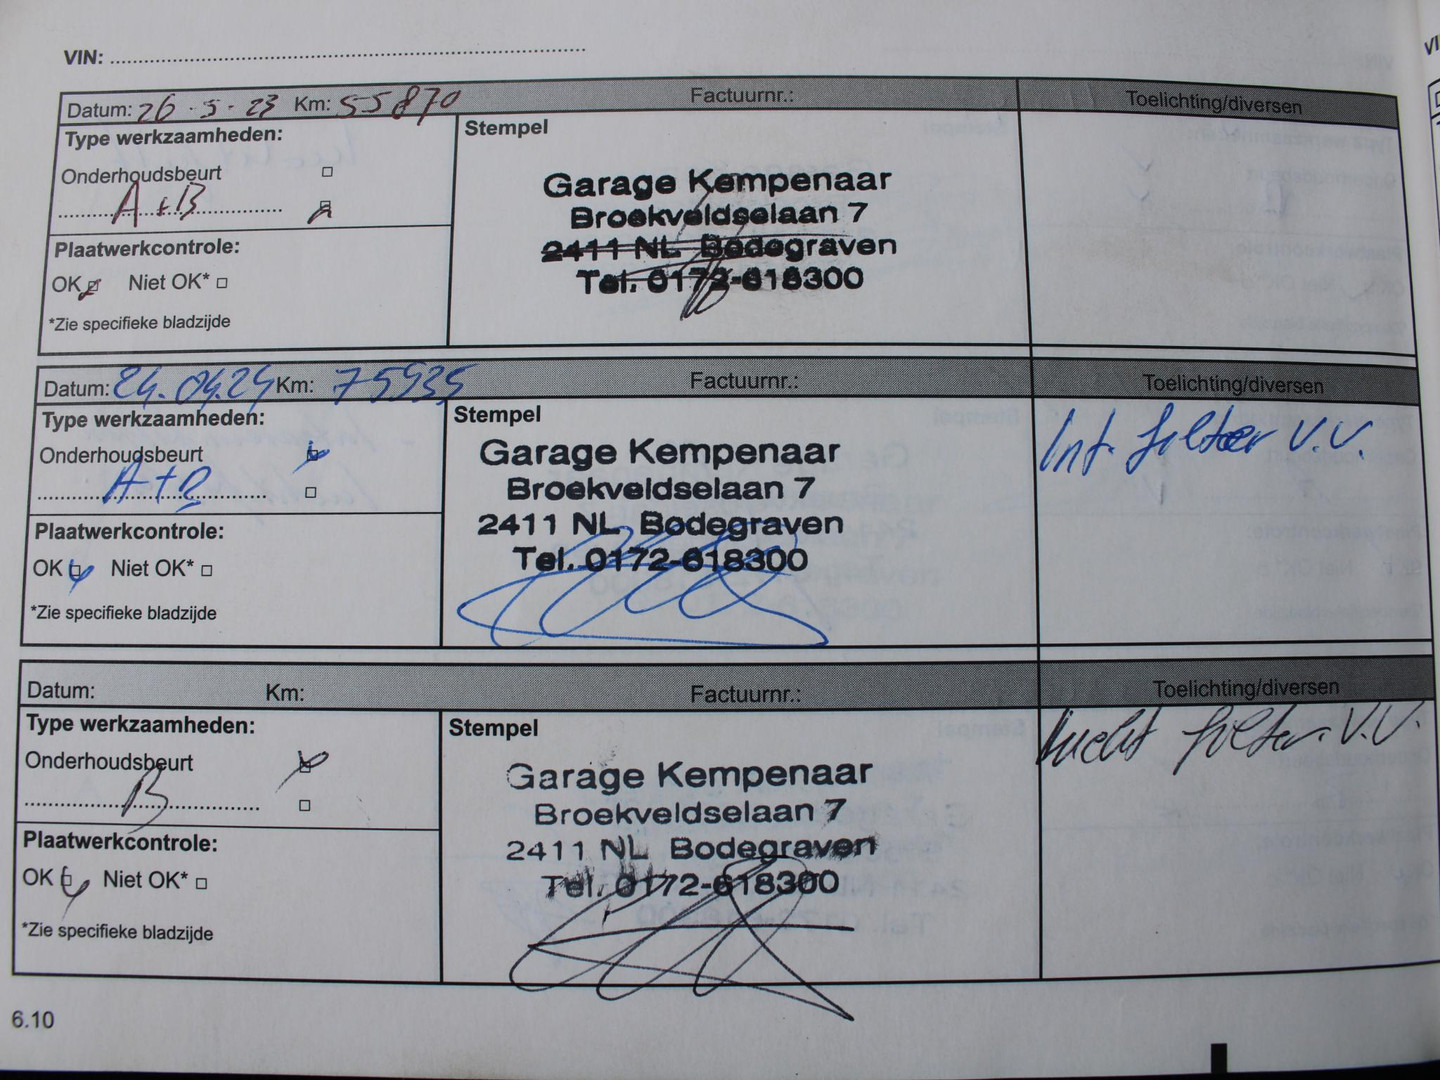 VIN:
Datum: 26-5-23 Km: 55870 Factuurnr.: Toelichting/diversen
Type werkzaamheden:
Stempel
Onderhoudsbeurt
A+B
Garage Kempenaar
Broekveldselaan 7
2411 NL Bodegraven
Tel. 0172-618300
Plaatwerkcontrole:
OK Niet OK*
*Zie specifieke bladzijde
Datum: 24.04.24 Km: 75935 Factuurnr.: Toelichting/diversen
Type werkzaamheden:
Stempel
Int. filter V.V.
Onderhoudsbeurt
A+B
Garage Kempenaar
Broekveldselaan 7
2411 NL Bodegraven
Tel. 0172-618300
Plaatwerkcontrole:
OK Niet OK*
*Zie specifieke bladzijde
Datum: Km: Factuurnr.: Toelichting/diversen
Type werkzaamheden:
Stempel
lucht filter. V.V.
Onderhoudsbeurt
B
Garage Kempenaar
Broekveldselaan 7
2411 NL Bodegraven
Tel. 0172-618300
Plaatwerkcontrole:
OK Niet OK*
*Zie specifieke bladzijde
6.10